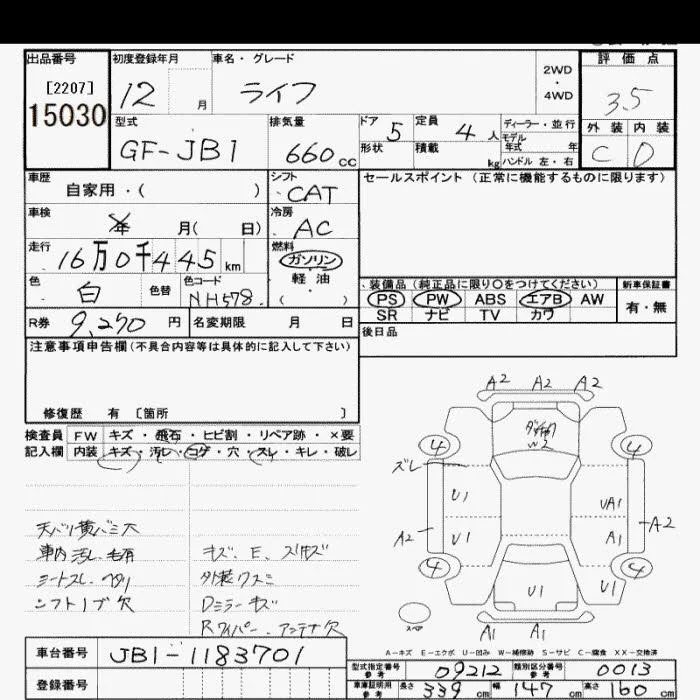 出品番号
[2207]
15030
初度登録年月
12 月
車名・グレード
ライフ
2WD
・
4WD
評価点
3.5
外装 内装
C D
型式
GF-JB1
排気量
660 cc
ドア 5
形状
定員 4 人
積載 kg
ディーラー・並行
モデル
年式 年
ハンドル 左・右
車歴
自家用・( )
シフト
CAT
セールスポイント (正常に機能するものに限ります)
車検
年 月( 日)
冷房
AC
走行
16万0千445km
燃料
ガソリン
軽油
( )
色
白
色替
色コード
NH578
装備品 (純正品に限り○をつけてください)
PS PW ABS エアB AW
SR ナビ TV カワ
新車保証書
有・無
R券 9,270 円
名変期限 月 日
後日品
注意事項申告欄(不具合内容等は具体的に記入して下さい)
修復歴 有 〔箇所 〕
検査員
記入欄
FW キズ・飛石・ヒビ割・リペア跡・×要
内装 キズ・汚レ・コゲ・穴・スレ・キレ・破レ
天バリ黄バミ大
車内汚レ.毛有
シートスレ.ヘタリ
シフトノブ欠
キズ、E、スリキズ
外装クスミ
Dミラーキズ
Rワイパー.アンテナ欠
A2 A2 A2
W2
4 4
ズレ
U1
UA1
A2 U1
A1 A2
4 4
U1 U1
スペア
A1 A1
A-キズ E-エクボ U-凹み W-補修跡 S-サビ C-腐食 XX-交換済
車台番号 JB1-1183701
登録番号
型式指定番号
参考
09212
類別区分番号
参考
0013
車庫証明用
参考
長さ 339 cm 幅 147 cm 高さ 160 cm